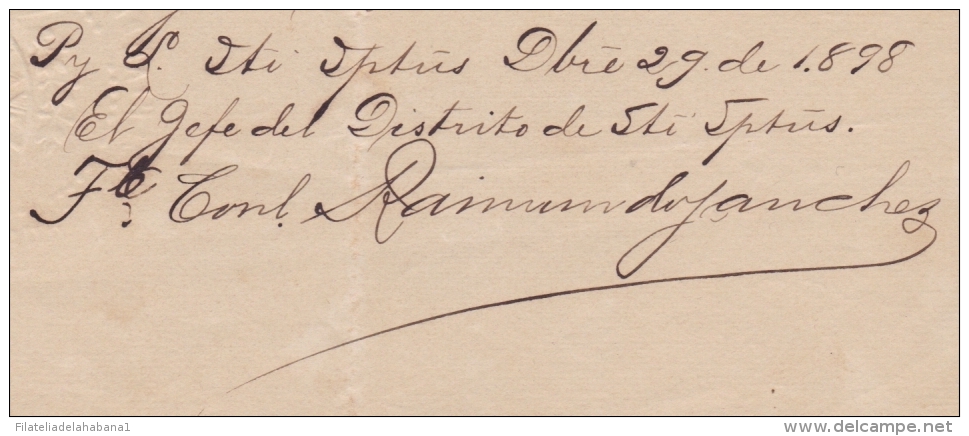 Py L. Sti Sptūs Dbrē 29. de 1.898
El Gefe del Distrito de Sti Sptūs.
Tte Conl. Raimundo Sanchez
Filateliadelahabana1
www.delcampe.net